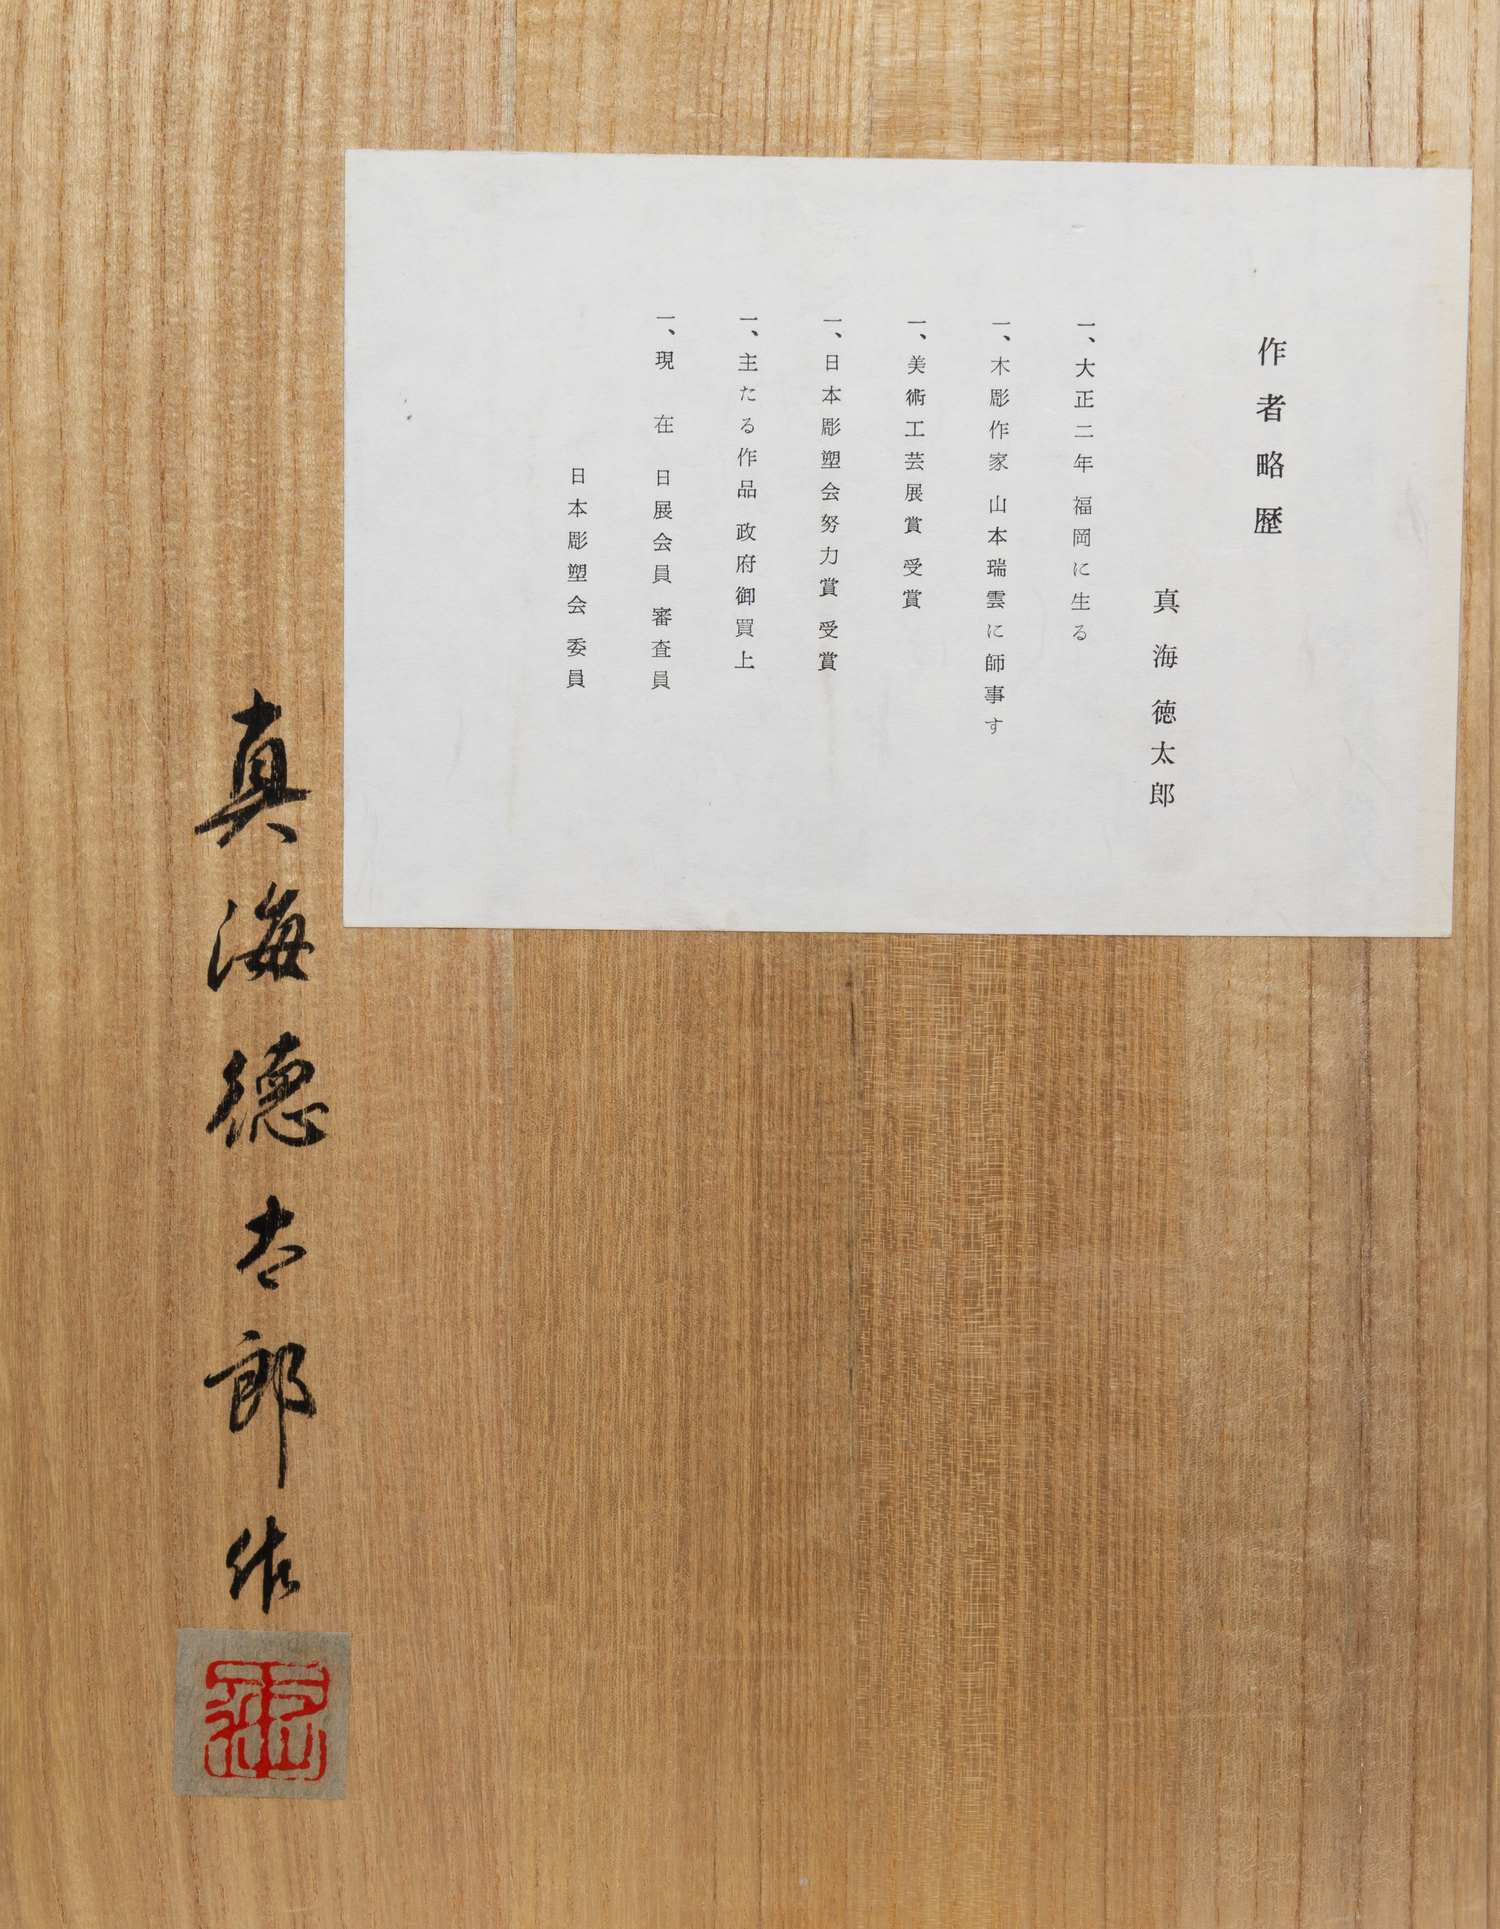 作者略歴
真海徳太郎
一、大正二年 福岡に生る
一、木彫作家 山本瑞雲に師事す
一、美術工芸展賞 受賞
一、日本彫塑会努力賞 受賞
一、主たる作品 政府御買上
一、現 在 日展会員 審査員
日本彫塑会 委員
真海徳太郎作